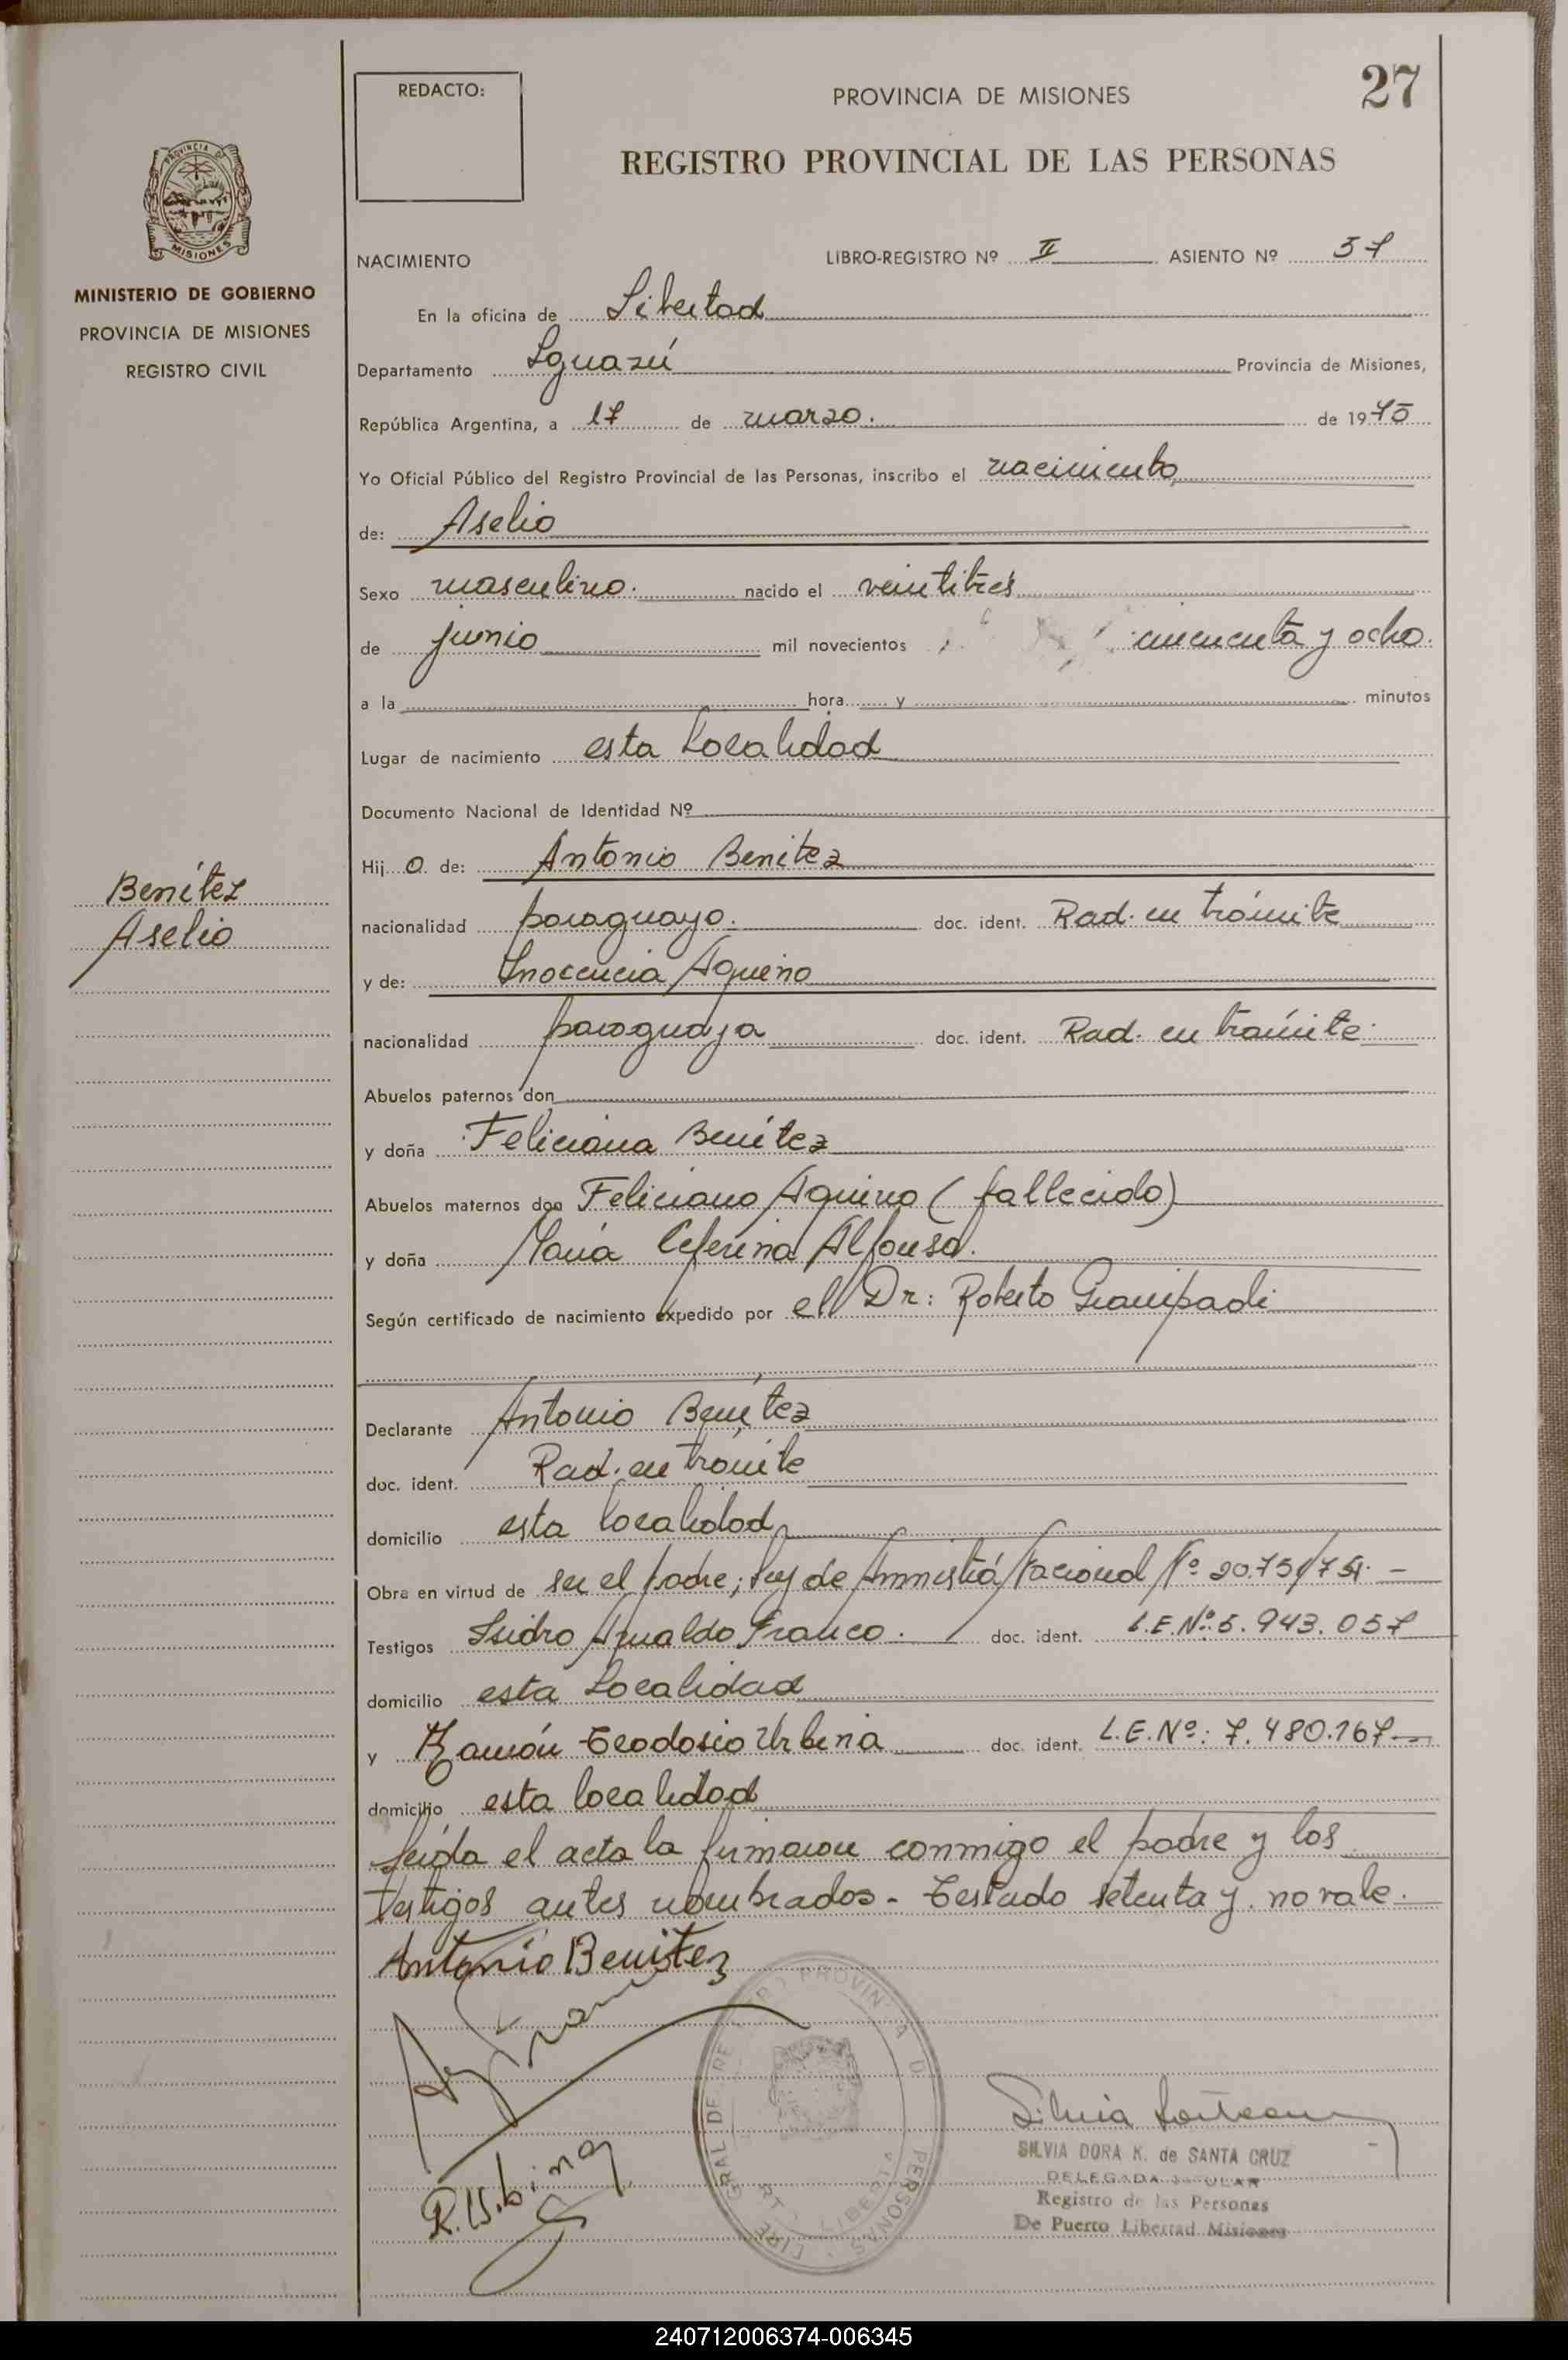 27
REDACTO:
PROVINCIA DE MISIONES
REGISTRO PROVINCIAL DE LAS PERSONAS
PROVINCIA DE
MISIONES
MINISTERIO DE GOBIERNO
PROVINCIA DE MISIONES
REGISTRO CIVIL
NACIMIENTO LIBRO-REGISTRO Nº II ASIENTO Nº 37
En la oficina de Libertad
Departamento Iguazú Provincia de Misiones,
República Argentina, a 17 de marzo. de 1975
Yo Oficial Público del Registro Provincial de las Personas, inscribo el nacimiento
de: Aselio
Sexo masculino. nacido el veintitrés
de junio mil novecientos cincuenta y ocho.
a la hora y minutos
Lugar de nacimiento esta Localidad
Documento Nacional de Identidad Nº
Hij o de: Antonio Benitez
Benítez
Aselio
nacionalidad paraguayo. doc. ident. Rad. en trámite
y de: Inocencia Aquino
nacionalidad paraguaya doc. ident. Rad. en trámite.
Abuelos paternos don
y doña Feliciana Benítez
Abuelos maternos don Feliciano Aquino (fallecido)
y doña María Ceferina Alfonso.
Según certificado de nacimiento expedido por el Dr: Roberto
Declarante Antonio Benítez
doc. ident. Rad. en trámite
domicilio esta localidad
Obra en virtud de ser el padre; Ley de Amnistía Nacional Nº 20.751/74. -
Testigos Isidro Arnaldo Franco. doc. ident. L.E.Nº: 5.943.057
domicilio esta Localidad
y Ramón Teodosio Urbina doc. ident. L.E.Nº: 7.480.167
domicilio esta localidad
Leída el acta la firmaron conmigo el padre y los
testigos antes nombrados - Testado setenta y. no vale.
Antonio Benitez
R. Urbina
SILVIA DORA K. de SANTA CRUZ
DELEGADA TITULAR
Registro de las Personas
De Puerto Libertad Misiones
240712006374-006345